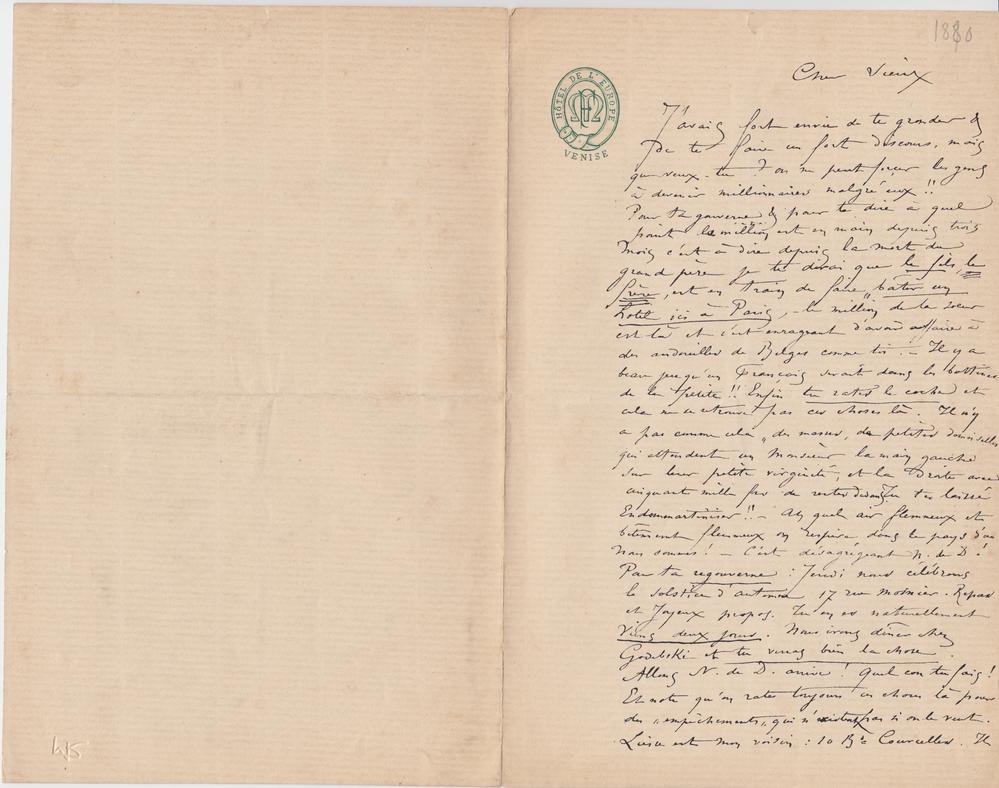 1880
Cher Vieux
HÔTEL DE L'EUROPE
VENISE
J'avais fort envie de te gronder &
de te faire un fort discours, mais
que veux-tu ? on ne peut forcer les gens
à devenir millionnaires malgré eux !!
Pour ta gouverne & pour te dire à quel
point le million est en main depuis trois
mois c'est à dire depuis la mort du
grand père je te dirai que le fils, le
frère, est en train de faire bâtir un
hotel ici à Paris, - le million de la soeur
est là et c'est enrageant d'avoir affaire à
des andouilles de Belges comme toi !! - Il y a
beau jeu qu'un Français serait dans les bottines
de la petite !! Enfin tu rates le coche et
cela ne se retrouve pas ces choses là. Il n'y
a pas comme cela "des masses" de petites demoiselles
qui attendent un Monsieur la main gauche
sur leur petite virginité, et la Droite avec
cinquante mille frs de rentes dedans. Tu t'es laissé
Endommartiniser !! - Ah quel air flemmeux et
bêtement flemmeux on respire dans le pays d'où
nous sommes ! - C'est désagrégeant N. de D !
Par ta regouverne : Jeudi nous célébrons
le solstice d'automne 17 rue Mosnier. Repas
et Joyeux propos. Tu en es naturellement
Viens deux jours. Nous irons dîner chez
Godebski et tu verras bien la chose.
Allons N. de D. arrive ! Quel con tu fais !
Et note qu'on rates toujours ces choses là pour
des "empêchements" qui n'existent pas si on le veut.
Liesse est mon voisin : 10 Bd Courcelles. Il